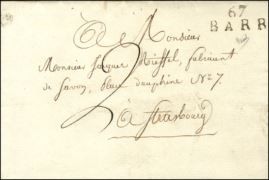 67
BARR
A Monsieur
Monsieur Jacques Rieffel, fabricant
de Savon, place dauphine N° 7.
à Strasbourg